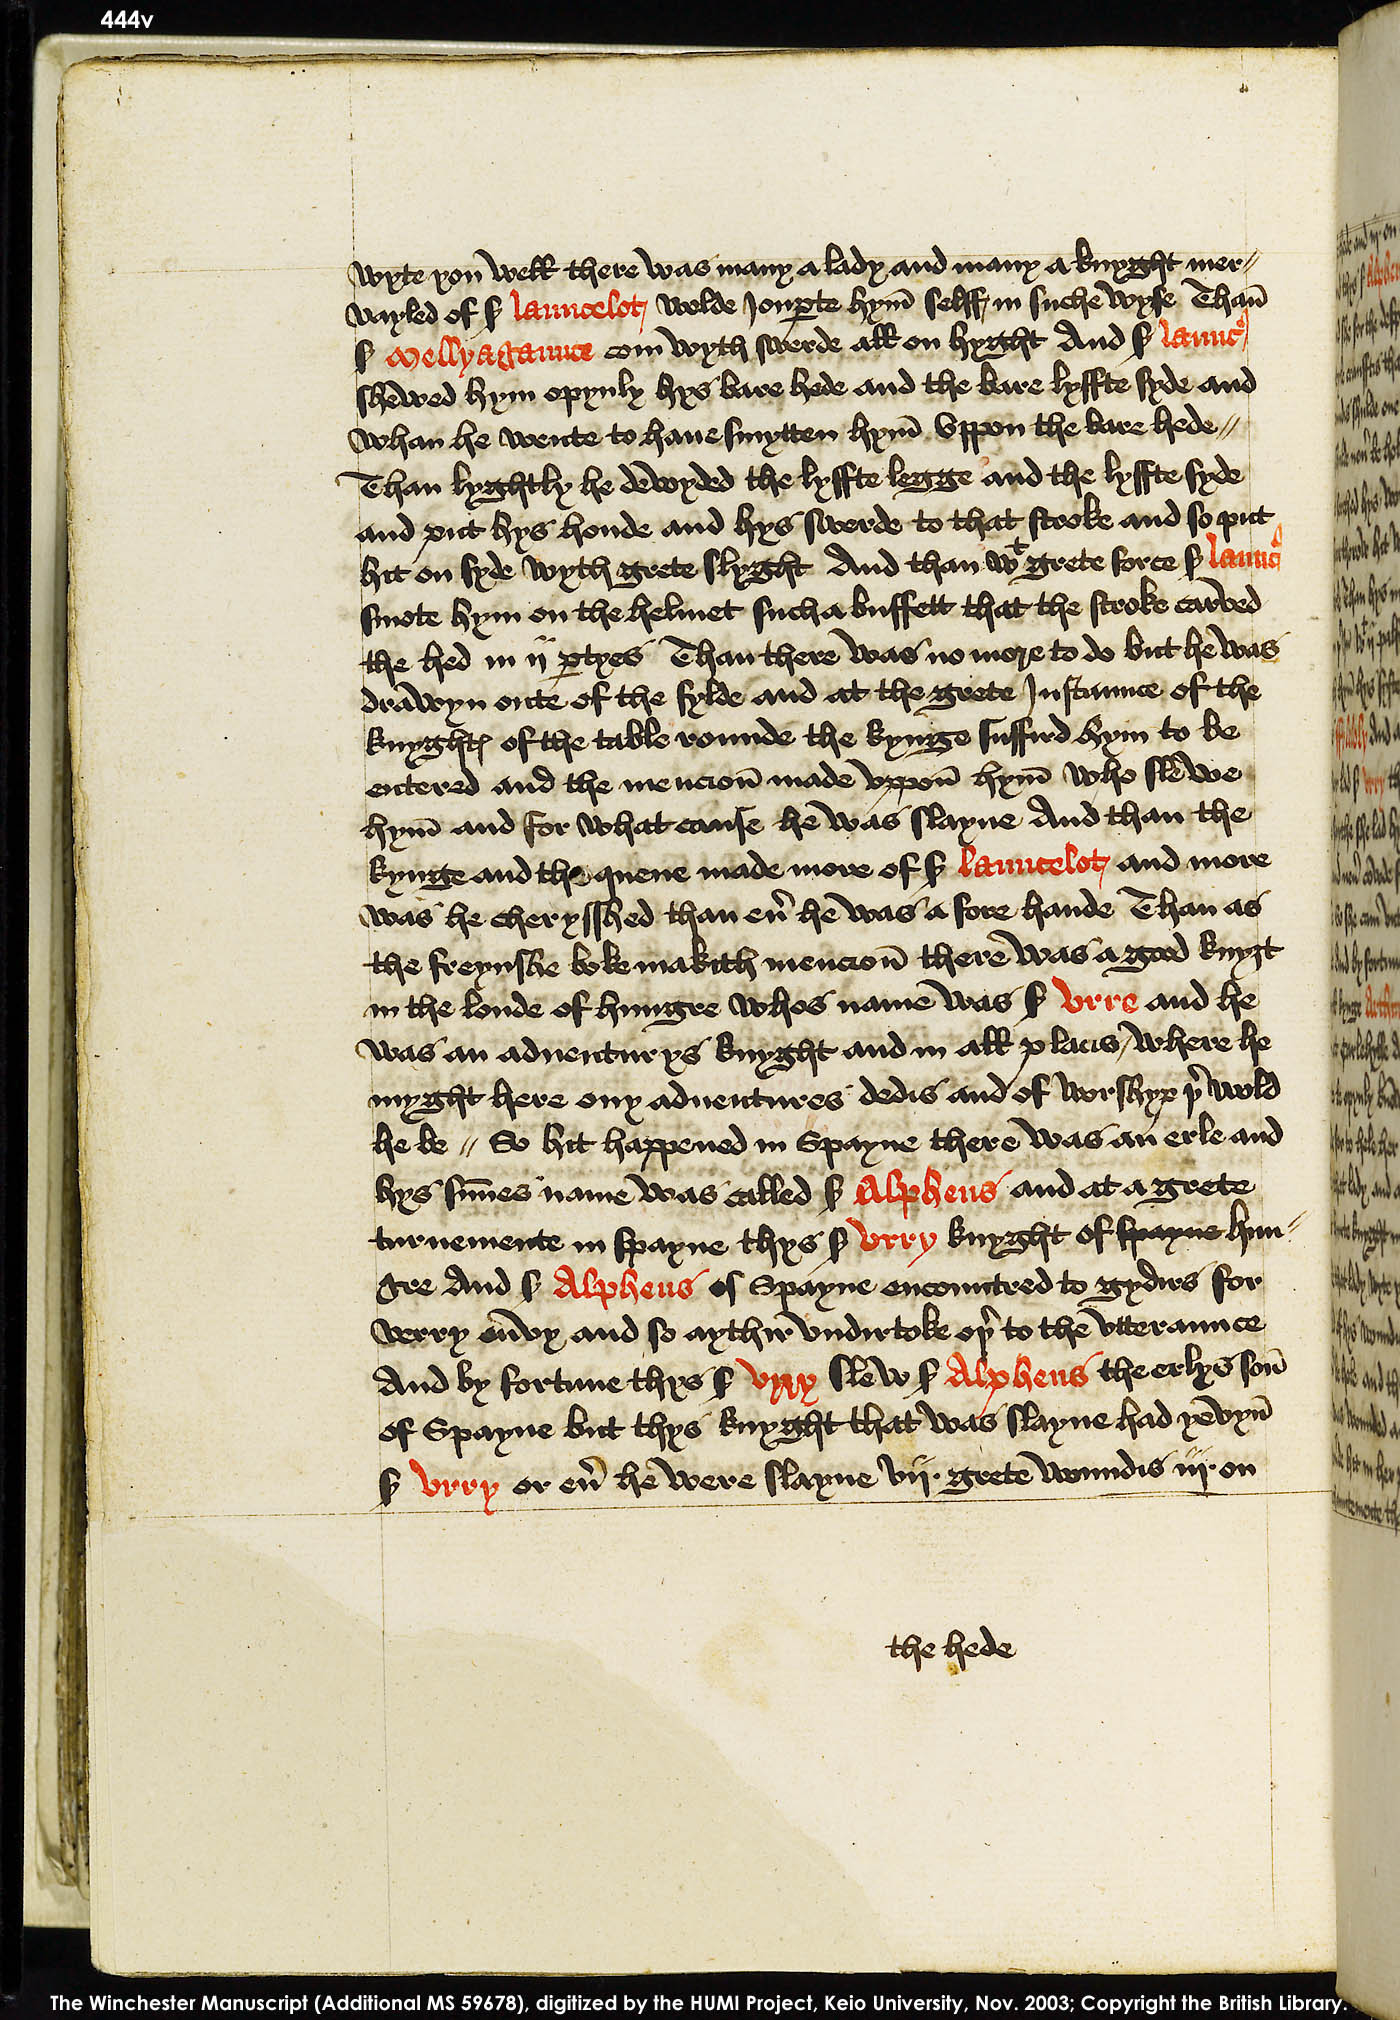 444v
wyte you well there was many a lady and many a knyght mer//
vayled of ẜ launcelot wolde Jouꝑte hym̄ selff in suche wyse Than̄
ẜ Mellyagaunce com wyth swerde all on hyght And ẜ launcꝰ
shewed hym opynly hys bare hede and the bare lyffte syde and
whan he wente to haue smytten hym̄ vppon the bare hede //
Than lyghtly he devoyded the lyffte legge and the lyffte syde
and put hys honde and hys swerde to that stroke and so put
hit on syde wyth grete slyght And than wᵗ grete force ẜ launcꝰ
smote hym on the helmet such a buffett that the stroke carved
the hed in ij ꝑtyes Than there was no more to do but he was
drawyn oute of the fylde and at the grete Instaunce of the
knyghtꝭ of the table rounde the kynge suffird hym to be
entered and the mencion̄ made vppon̄ hym̄ who slewe
hym̄ and for what cause he was slayne And than the
kynge and the quene made more of ẜ launcelot and more
was he cherysshed than eu̾ he was a fore hande Than as
the freynshe boke makith mencion̄ there was a good knyȝt
in the londe of hungre whos name was ẜ vrre and he
was an adventurys knyght and in all placis where he
myght here ony adventures dedis and of worshyp þ̾ wold
he be // So hit happened in Spayne there was an erle and
hys sun̄es name was called ẜ Alpheus and at a grete
turnemente in spayne thys ẜ vrry knyght of spayne hun//
gre And ẜ Alpheus of Spayne encountred to gydirs for
verry envy and so aythir vndirtoke oþ̾ to the vtteraunce
And by fortune thys ẜ vrry slew ẜ Alpheus the erlys son̄
of Spayne but thys knyght that was slayne had yevyn̄
ẜ vrry or eu̾ he were slayne vij. grete woundis iij. on
the hede
The Winchester Manuscript (Additional MS 59678), digitized by the HUMI Project, Keio University, Nov. 2003; Copyright the British Library.